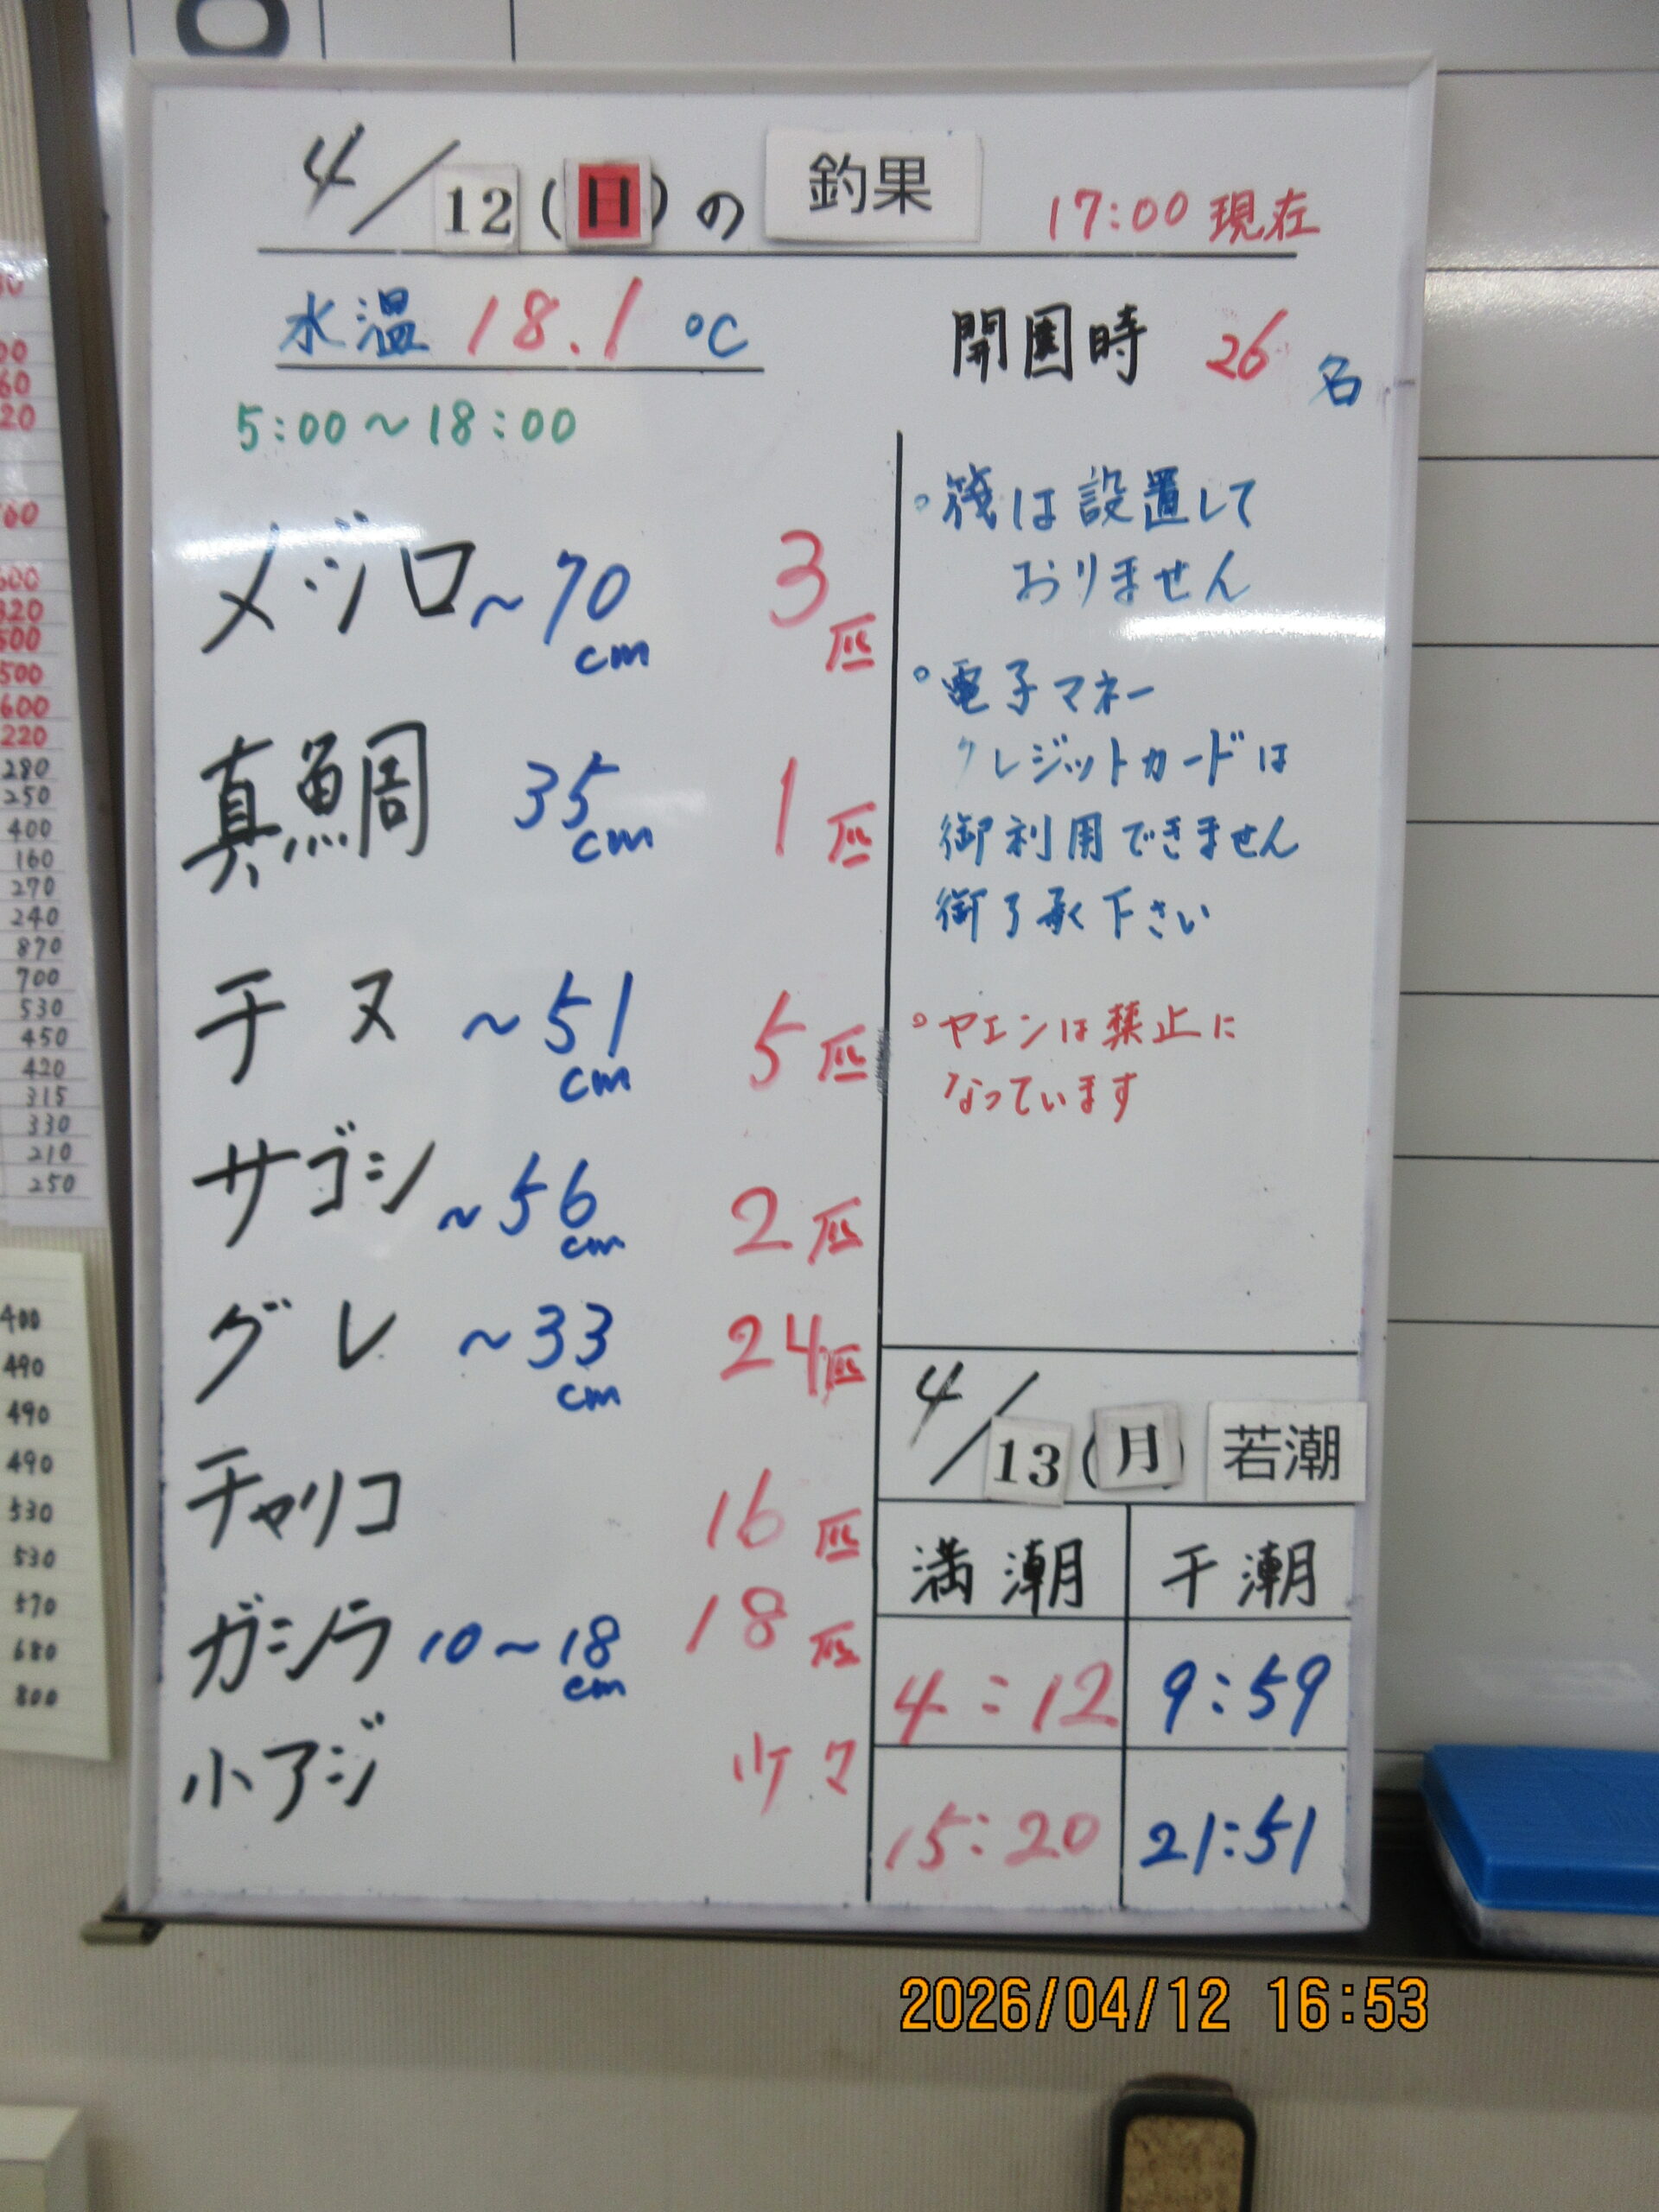 4/12(日)の 釣果 17:00 現在
水温 18.1 ℃
開園時 26 名
5:00〜18:00
メジロ 〜70cm 3匹
真鯛 35cm 1匹
チヌ 〜51cm 5匹
サゴシ 〜56cm 2匹
グレ 〜33cm 24匹
チャリコ 16匹
ガシラ 10〜18cm 18匹
小アジ 少々
。筏は設置して
おりません
。電子マネー
クレジットカードは
御利用できません
御了承下さい
。ヤエンは禁止に
なっています
4/13(月) 若潮
満潮 干潮
4:12 9:59
15:20 21:51
600
220
280
250
400
160
270
240
870
700
530
450
420
315
330
210
250
400
490
490
490
530
530
570
680
800
2026/04/12 16:53